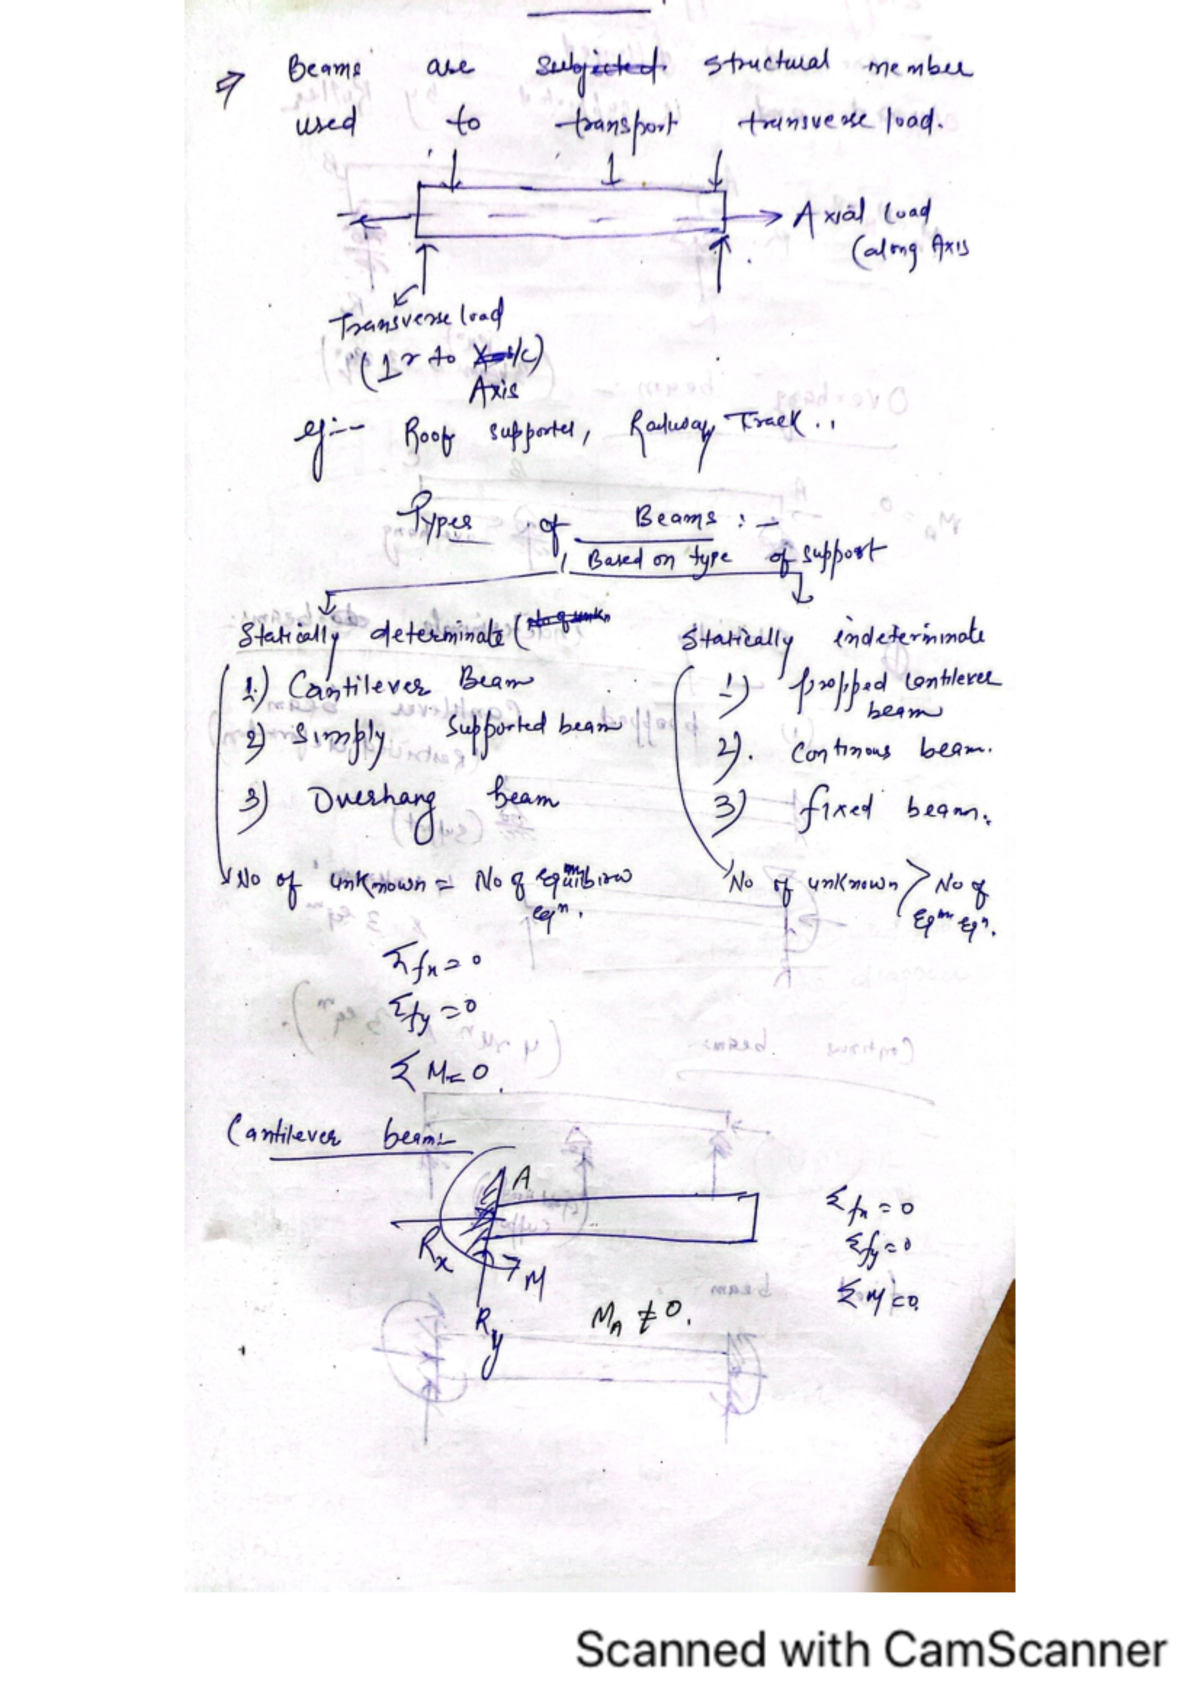 ⇒ Beams are subjected structural member
used to transport transverse load.
→ Axial load
(along Axis
Transverse load
(⊥r to X-s/c)
Axis
eg:- Roof supported, Railway Track..
Types of Beams :-
Based on type of support
Statically determinate (No of unkn
1.) Cantilever Beam
2) Simply Supported beam
3) Overhang beam
No of unknown = No of equilibrium
eqn.
Statically indeterminate
1) propped cantilever
beam
2). Continous beam.
3) fixed beam.
No of unknown > No of
Eqm eqn.
Σfx = 0
Σfy = 0
Σ M = 0.
Cantilever beam:-
A
Rx
M
Ry
MA ≠ 0.
Σfx = 0
Σfy = 0
Σ M = 0.
Scanned with CamScanner